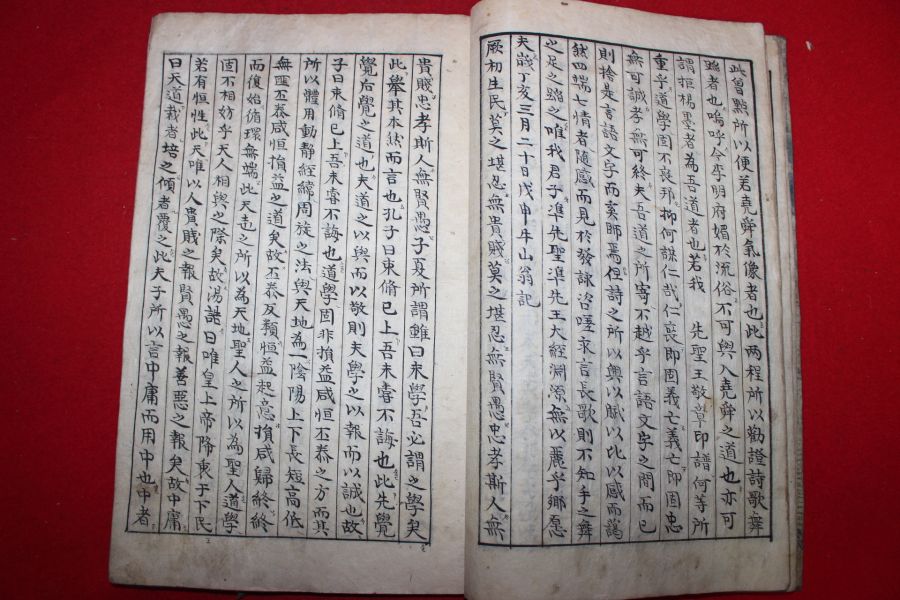 此曾點所以便若堯舜氣像者也此两程所以勸證詩歌舞
蹈者也嗚呼今李明府媚於流俗不可與入堯舜之道也亦可
謂拒楊墨者為吾道者也若我 先聖王敬章印譜何等所
重乎道學固不喪邦抑何誅仁哉仁丧即固義亡義亡即固忠
無可誠孝無可終夫吾道之所寄不越乎言語文字之間而已
則捨是言語文字而奚師焉但詩之所以興以賦以比以感而謁
然四端七情者隨感而見於發詠咨嗟永言長歌則不知手之舞
之足之蹈之唯我君子準先聖準先王大經淵源無以麗乎鄉愿
夫歲丁亥三月二十日戊申牛山翁記
厥初生民莫之堪忍無貴賤莫之堪忍無賢愚忠孝斯人無
貴賤忠孝斯人無賢愚子夏所謂雖曰未學吾必謂之學矣
此舉其本然而言也孔子曰束脩已上吾未嘗不誨也此先覺
覺后覺之道也夫道之以與而以敬則夫學之以報而以誠也故
子曰束脩已上吾未嘗不誨也道學固非損益咸恒丕泰之方而其
所以體用動静經緯周旋之法與天地為一陰陽上下長短高低
無匪丕泰咸恒損益之道矣故丕泰反類恒益起意損咸歸終終
而復始循環無端此天地之所以為天地聖人之所以為聖人道學
固不相妨乎天人相與之際矣故湯誥曰唯皇上帝降衷于下民
若有恒性此天唯以人貴賤之報賢愚之報善惡之報矣故中庸
曰天道栽者培之傾者覆之此夫子所以言中庸而用中也中者